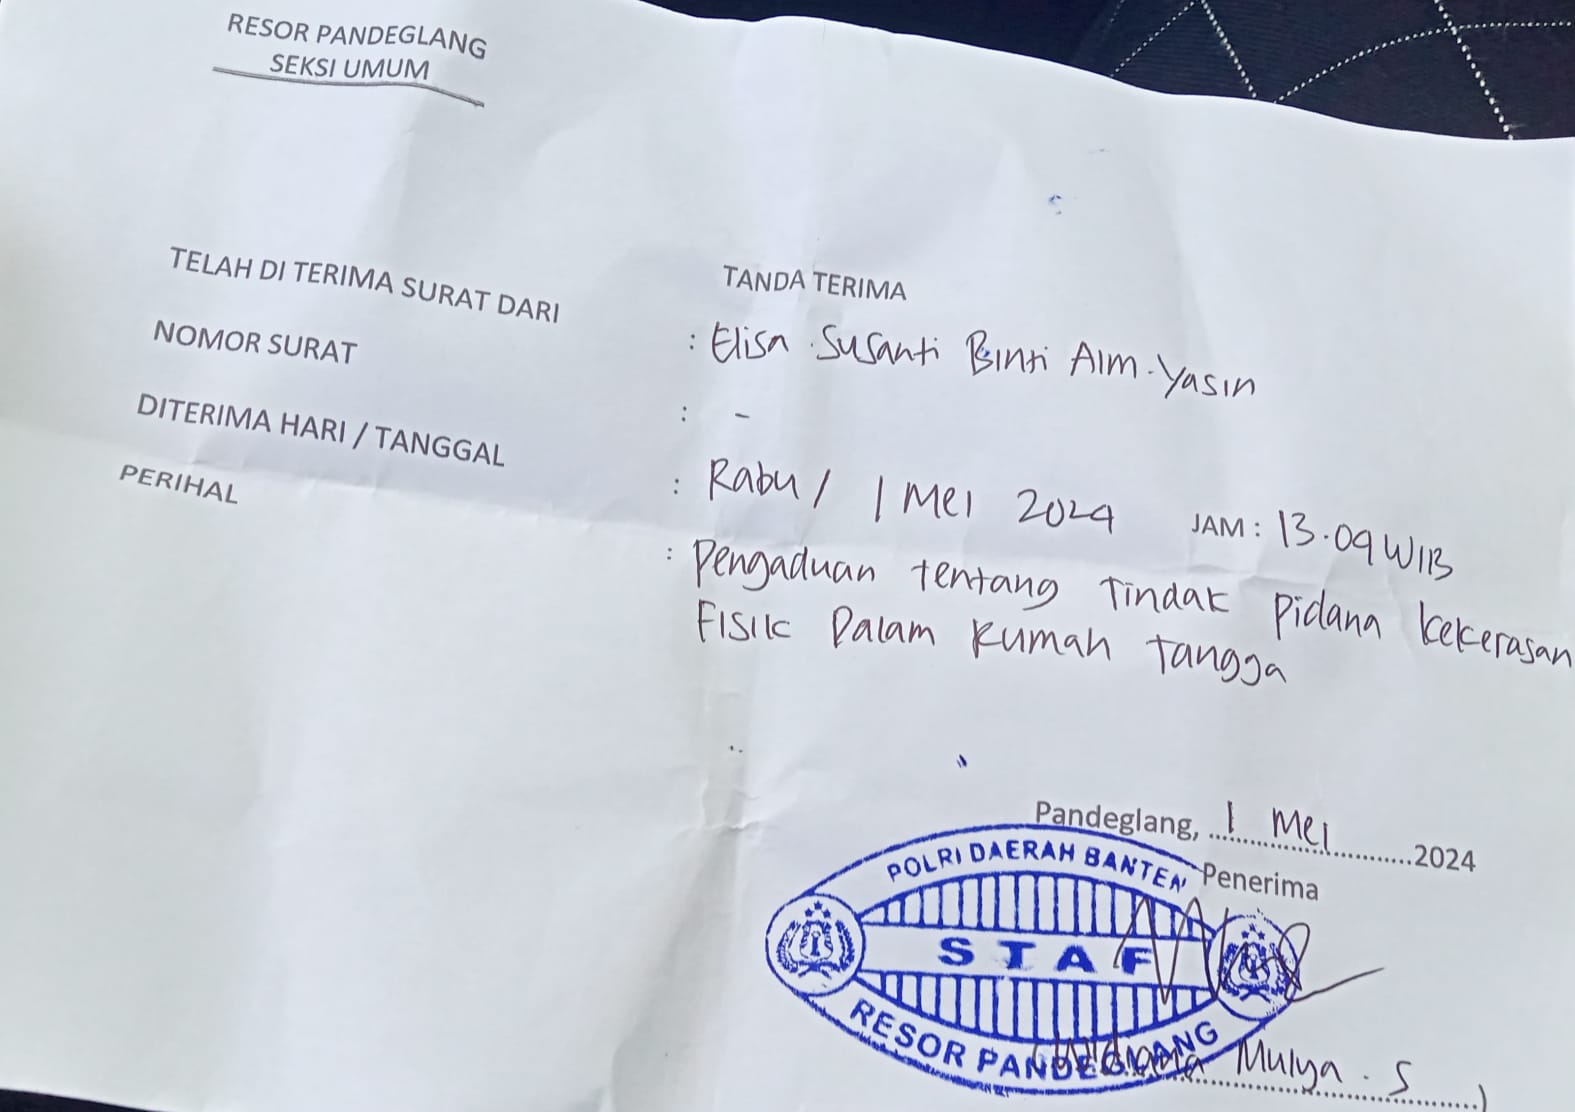 RESOR PANDEGLANG
SEKSI UMUM
TANDA TERIMA
TELAH DI TERIMA SURAT DARI : Elisa Susanti Binti Alm. Yasin
NOMOR SURAT : -
DITERIMA HARI / TANGGAL : Rabu / 1 Mei 2024 JAM : 13.09 WIB
PERIHAL : Pengaduan tentang Tindak Pidana Kekerasan
Fisik Dalam Rumah Tangga
Pandeglang, 1 Mei 2024
Penerima
POLRI DAERAH BANTEN
STAF
RESOR PANDEGLANG
Mulya . S